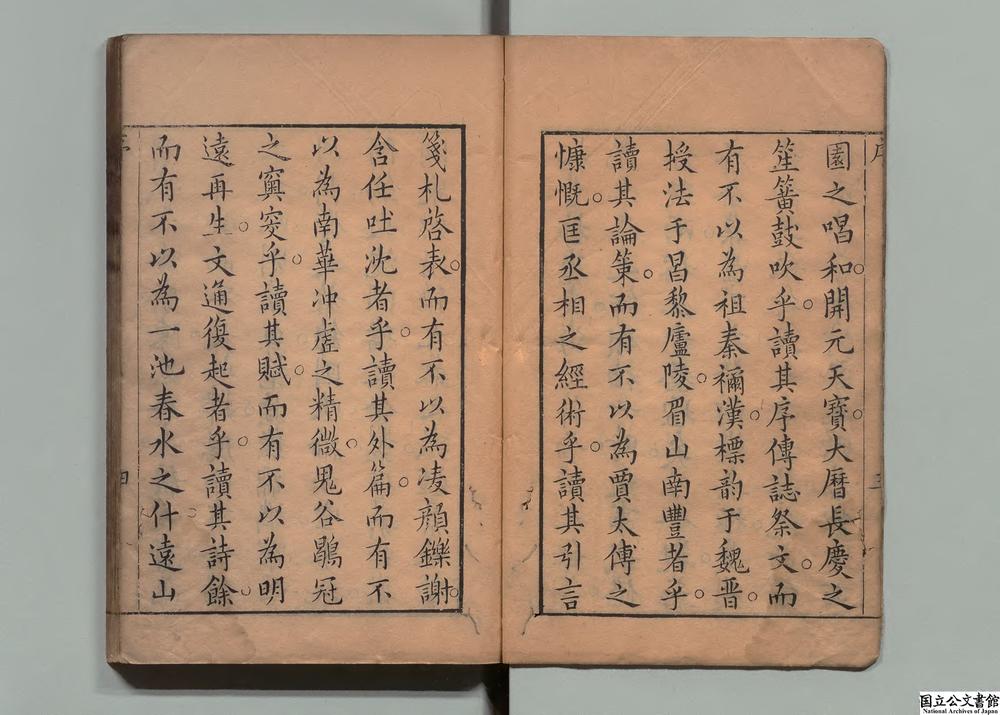 園之唱和開元天寶大曆長慶之
笙簧鼓吹乎讀其序傳誌祭文而
有不以為祖秦禰漢標韵于魏晋
授法于昌黎廬陵眉山南豐者乎
讀其論策而有不以為賈太傅之
慷慨匡丞相之經術乎讀其引言
箋札啓表而有不以為凌顔鑠謝
含任吐沈者乎讀其外篇而有不
以為南華冲虛之精微鬼谷鶡冠
之窾窔乎讀其賦而有不以為明
遠再生文通復起者乎讀其詩餘
而有不以為一池春水之什遠山
序
三
四
国立公文書館
National Archives of Japan